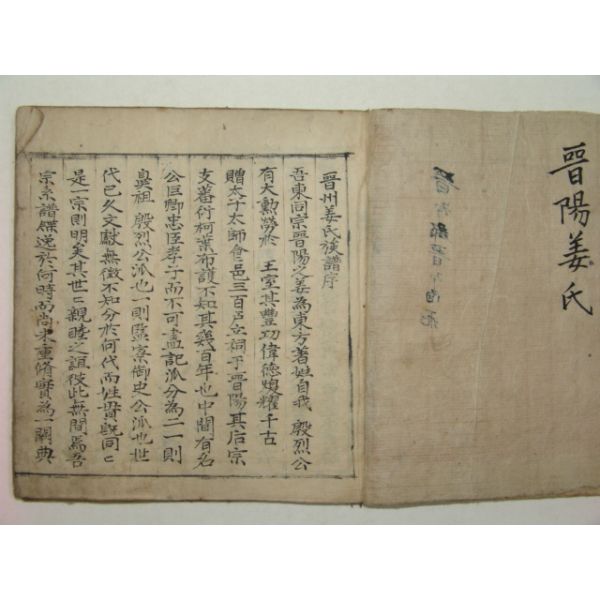 晋陽姜氏
晋州姜氏族譜序
吾東同宗晋陽之姜為東方著姓自我 殷烈公
有大勲勞於 王室其豐功偉德煥耀千古
贈太子太師會邑三百戶立祠于晋陽其后宗
支蕃衍柯葉布護不知其幾百年也中間有名
公巨卿忠臣孝子而不可盡記派分為二一則
鼻祖 殷烈公派也一則監察御史公派也世
代已久文獻無徵不知分於何代而姓貫旣同
是一宗則明矣其世〻親睦之誼彼此無間焉吾
宗系譜牒逸於何時而尚未重脩實為一闕典